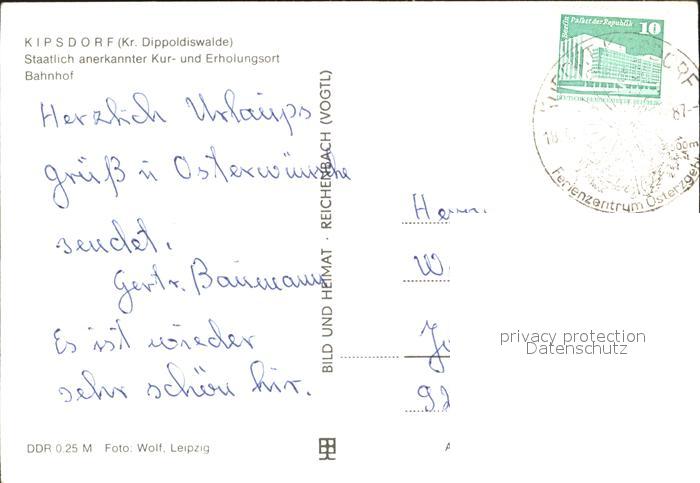 KIPSDORF (Kr. Dippoldiswalde)
Staatlich anerkannter Kur- und Erholungsort
Bahnhof
Herzlich Urlaubs
grüß u Osterwünsche
sendet.
Gertr. Baumann
Es ist wieder
sehr schön hir.
DDR 0.25 M Foto: Wolf, Leipzig
BILD UND HEIMAT · REICHENBACH (VOGTL)
Berlin Palast der Republik
10
DEUTSCHE DEMOKRATISCHE REPUBLIK
87-
Ferienzentrum Osterzgeb
Herrn
W
92
A
privacy protection
Datenschutz